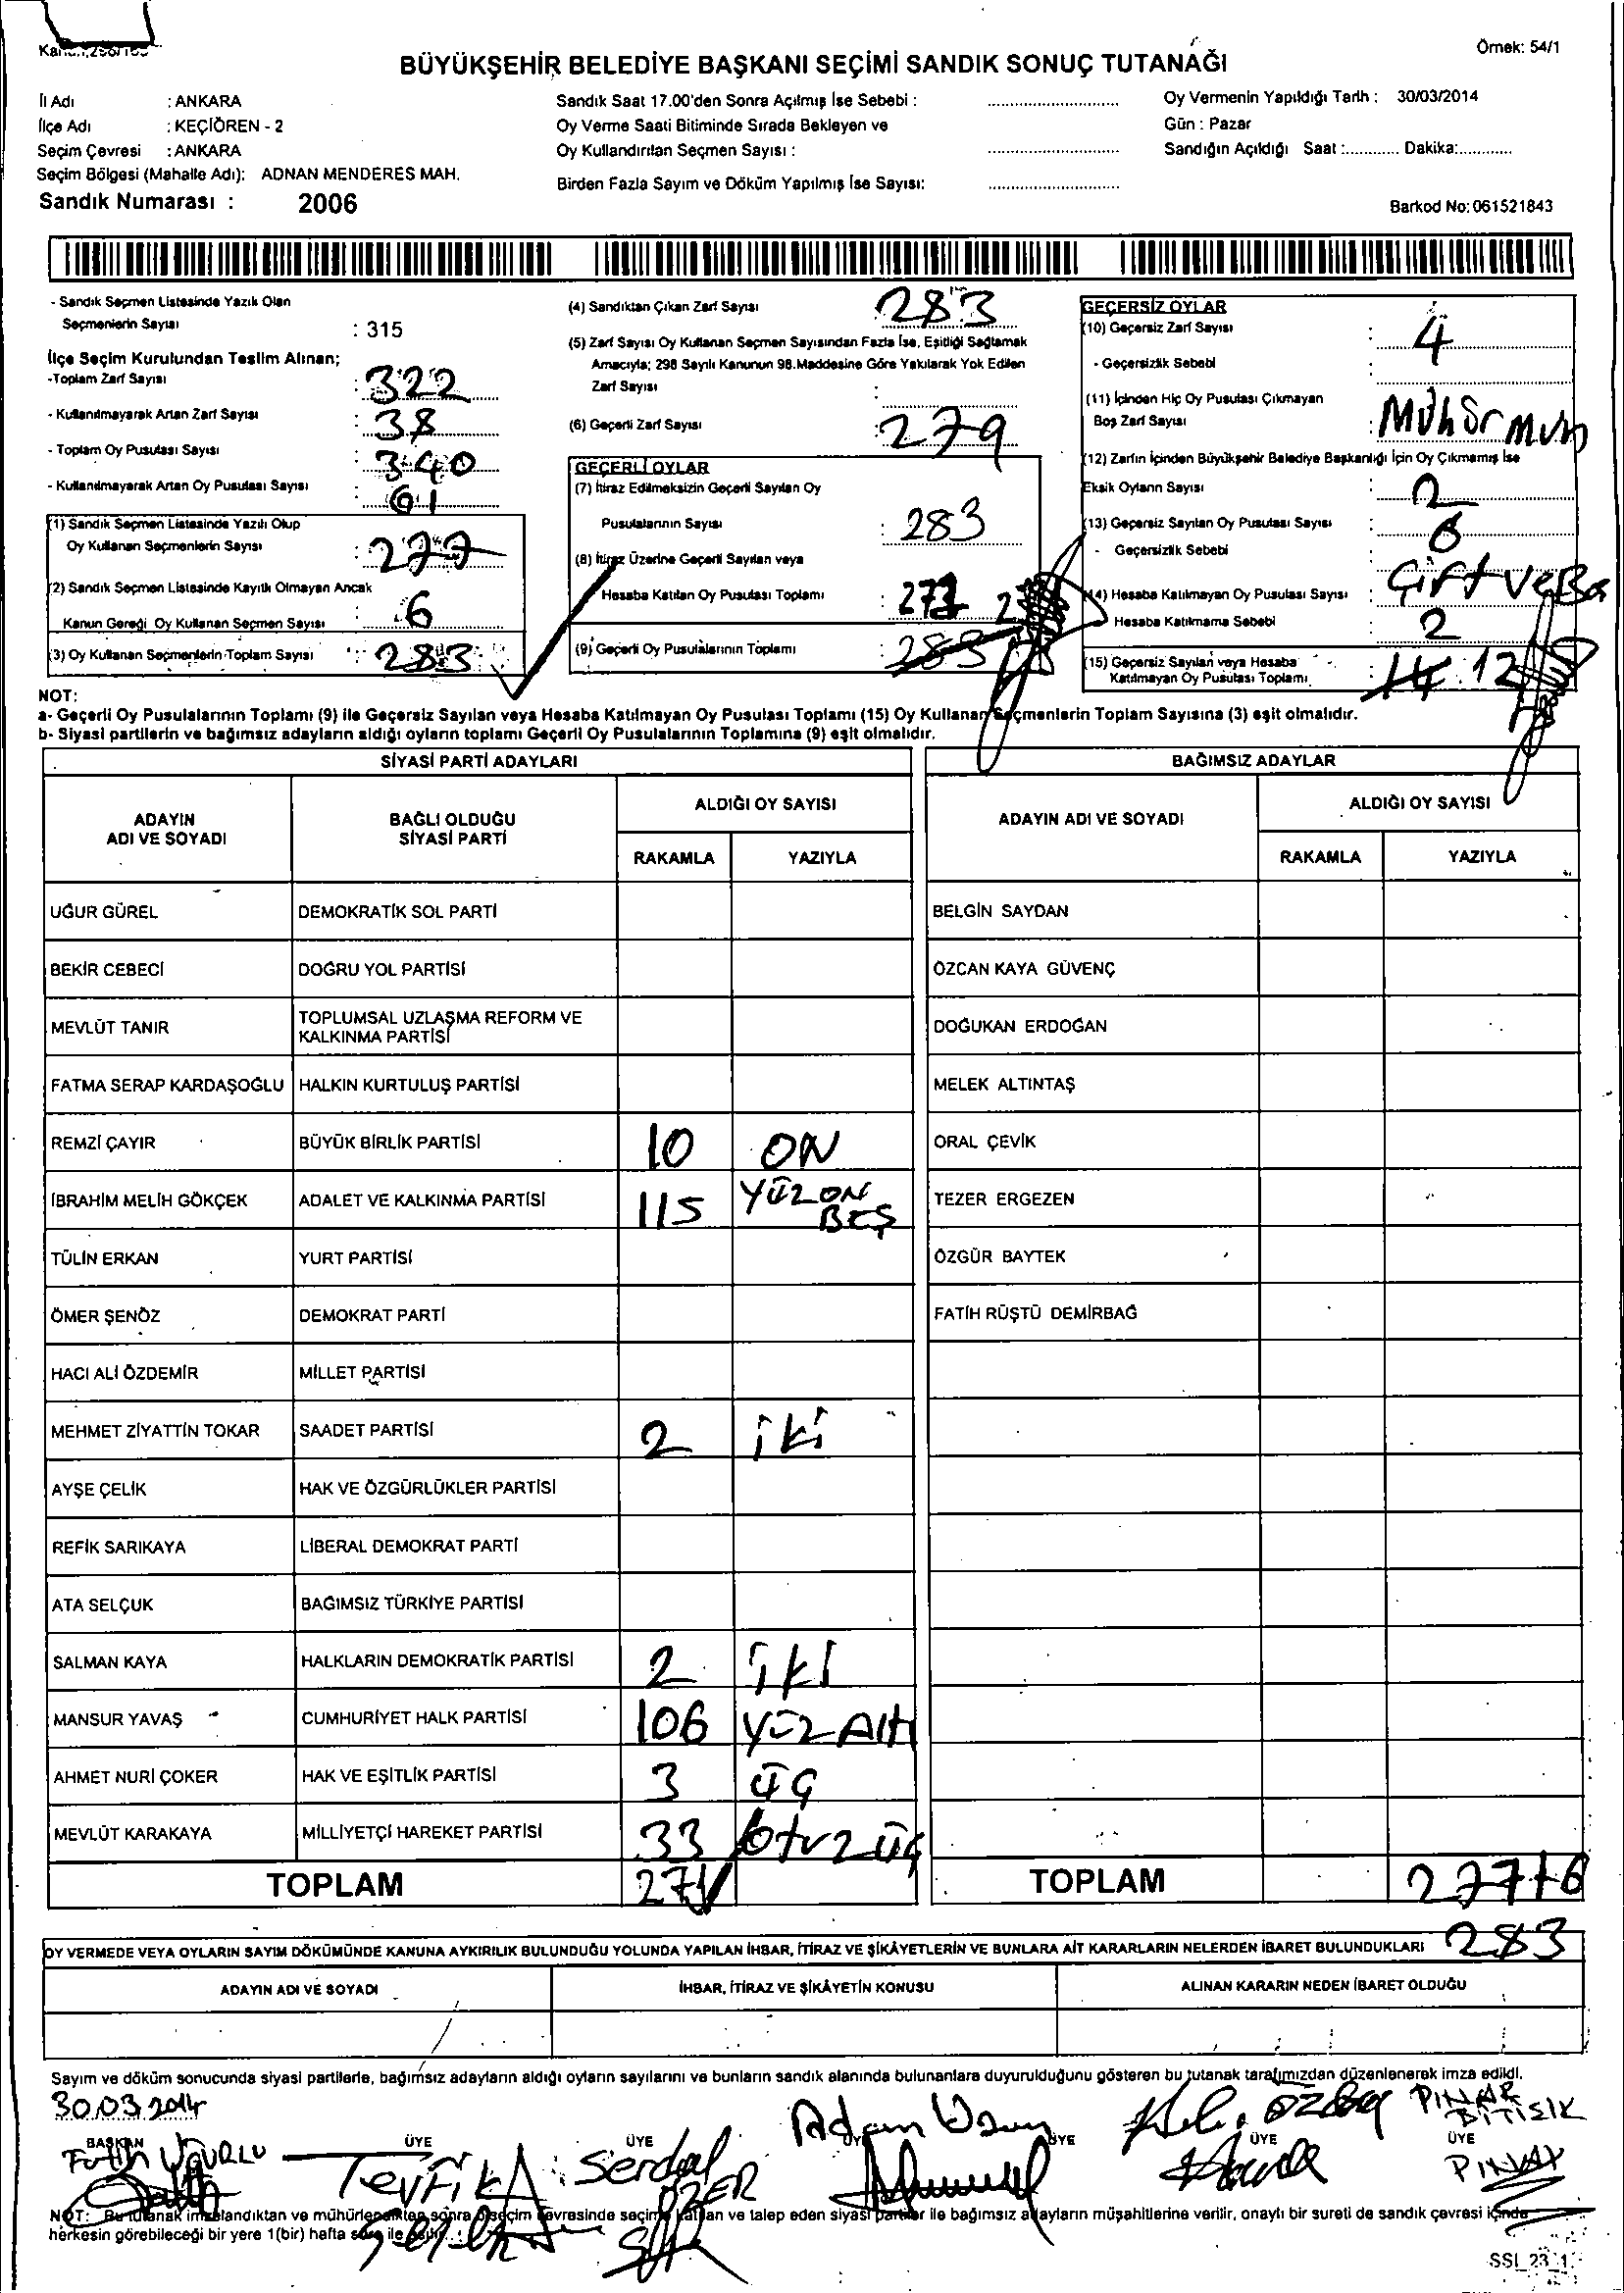 BÜYÜKŞEHİR BELEDİYE BAŞKANI SEÇİMİ SANDIK SONUÇ TUTANAĞI
Örnek: 54/1
İl Adı : ANKARA
İlçe Adı : KEÇİÖREN - 2
Seçim Çevresi : ANKARA
Seçim Bölgesi (Mahalle Adı): ADNAN MENDERES MAH.
Sandık Numarası : 2006
Sandık Saat 17.00'den Sonra Açılmış İse Sebebi :
Oy Verme Saati Bitiminde Sırada Bekleyen ve
Oy Kullandırılan Seçmen Sayısı :
Birden Fazla Sayım ve Döküm Yapılmış İse Sayısı:
Oy Vermenin Yapıldığı Tarih : 30/03/2014
Gün : Pazar
Sandığın Açıldığı Saat :............ Dakika:............
Barkod No: 061521843
- Sandık Seçmen Listesinde Yazılı Olan
Seçmenlerin Sayısı : 315
İlçe Seçim Kurulundan Teslim Alınan;
-Toplam Zarf Sayısı : 322
- Kullanılmayarak Artan Zarf Sayısı : 38
- Toplam Oy Pusulası Sayısı : 340
- Kullanılmayarak Artan Oy Pusulası Sayısı : 61
(1) Sandık Seçmen Listesinde Yazılı Olup
Oy Kullanan Seçmenlerin Sayısı : 277
(2) Sandık Seçmen Listesinde Kayıtlı Olmayan Ancak
Kanun Gereği Oy Kullanan Seçmen Sayısı : 6
(3) Oy Kullanan Seçmenlerin Toplam Sayısı : 283
(4) Sandıktan Çıkan Zarf Sayısı 283
(5) Zarf Sayısı Oy Kullanan Seçmen Sayısından Fazla İse, Eşitliği Sağlamak
Amacıyla; 298 Sayılı Kanunun 98.Maddesine Göre Yakılarak Yok Edilen
Zarf Sayısı :
(6) Geçerli Zarf Sayısı : 279
GEÇERLİ OYLAR
(7) İtiraz Edilmeksizin Geçerli Sayılan Oy
Pusulalarının Sayısı : 283
(8) İtiraz Üzerine Geçerli Sayılan veya
Hesaba Katılan Oy Pusulası Toplamı : 271
(9) Geçerli Oy Pusulalarının Toplamı : 283
GEÇERSİZ OYLAR
(10) Geçersiz Zarf Sayısı : 4
- Geçersizlik Sebebi
(11) İçinden Hiç Oy Pusulası Çıkmayan
Boş Zarf Sayısı :
(12) Zarfın İçinden Büyükşehir Belediye Başkanlığı İçin Oy Çıkmamış İse
Eksik Oyların Sayısı : 2
(13) Geçersiz Sayılan Oy Pusulası Sayısı :
- Geçersizlik Sebebi
(14) Hesaba Katılmayan Oy Pusulası Sayısı :
Hesaba Katılmama Sebebi : 2
(15) Geçersiz Sayılan veya Hesaba
Katılmayan Oy Pusulası Toplamı : 14 12
NOT:
a- Geçerli Oy Pusulalarının Toplamı (9) ile Geçersiz Sayılan veya Hesaba Katılmayan Oy Pusulası Toplamı (15) Oy Kullanan Seçmenlerin Toplam Sayısına (3) eşit olmalıdır.
b- Siyasi partilerin ve bağımsız adayların aldığı oyların toplamı Geçerli Oy Pusulalarının Toplamına (9) eşit olmalıdır.
SİYASİ PARTİ ADAYLARI
ADAYIN ADI VE SOYADI
BAĞLI OLDUĞU SİYASİ PARTİ
ALDIĞI OY SAYISI
RAKAMLA YAZIYLA
UĞUR GÜREL DEMOKRATİK SOL PARTİ
BEKİR CEBECİ DOĞRU YOL PARTİSİ
MEVLÜT TANIR TOPLUMSAL UZLAŞMA REFORM VE KALKINMA PARTİSİ
FATMA SERAP KARDAŞOĞLU HALKIN KURTULUŞ PARTİSİ
REMZİ ÇAYIR BÜYÜK BİRLİK PARTİSİ 10 ON
İBRAHİM MELİH GÖKÇEK ADALET VE KALKINMA PARTİSİ 115 YÜZON BEŞ
TÜLİN ERKAN YURT PARTİSİ
ÖMER ŞENÖZ DEMOKRAT PARTİ
HACI ALİ ÖZDEMİR MİLLET PARTİSİ
MEHMET ZİYATTİN TOKAR SAADET PARTİSİ 2 iki
AYŞE ÇELİK HAK VE ÖZGÜRLÜKLER PARTİSİ
REFİK SARIKAYA LİBERAL DEMOKRAT PARTİ
ATA SELÇUK BAĞIMSIZ TÜRKİYE PARTİSİ
SALMAN KAYA HALKLARIN DEMOKRATİK PARTİSİ 2 iki
MANSUR YAVAŞ CUMHURİYET HALK PARTİSİ 106 YÜZ Altı
AHMET NURİ ÇOKER HAK VE EŞİTLİK PARTİSİ 3 ÜÇ
MEVLÜT KARAKAYA MİLLİYETÇİ HAREKET PARTİSİ 33 Otuz üç
TOPLAM 271
BAĞIMSIZ ADAYLAR
ADAYIN ADI VE SOYADI
ALDIĞI OY SAYISI
RAKAMLA YAZIYLA
BELGİN SAYDAN
ÖZCAN KAYA GÜVENÇ
DOĞUKAN ERDOĞAN
MELEK ALTINTAŞ
ORAL ÇEVİK
TEZER ERGEZEN
ÖZGÜR BAYTEK
FATİH RÜŞTÜ DEMİRBAĞ
TOPLAM 277+6
283
OY VERMEDE VEYA OYLARIN SAYIM DÖKÜMÜNDE KANUNA AYKIRILIK BULUNDUĞU YOLUNDA YAPILAN İHBAR, İTİRAZ VE ŞİKÂYETLERİN VE BUNLARA AİT KARARLARIN NELERDEN İBARET BULUNDUKLARI
ADAYIN ADI VE SOYADI
İHBAR, İTİRAZ VE ŞİKÂYETİN KONUSU
ALINAN KARARIN NEDEN İBARET OLDUĞU
Sayım ve döküm sonucunda siyasi partilerle, bağımsız adayların aldığı oyların sayılarını ve bunların sandık alanında bulunanlara duyurulduğunu gösteren bu tutanak tarafımızdan düzenlenerek imza edildi.
30.03.2014
BAŞKAN ÜYE ÜYE ÜYE ÜYE ÜYE
Fatih UĞURLU
Serdal ÖZER
PINAR BİTİŞİK
NOT: Bu tutanak imzalandıktan ve mühürlendikten sonra o seçim çevresinde seçime katılan ve talep eden siyasi partiler ile bağımsız adayların müşahitlerine verilir, onaylı bir sureti de sandık çevresi içinde
herkesin görebileceği bir yere 1(bir) hafta süre ile asılır.
SSI_23_1